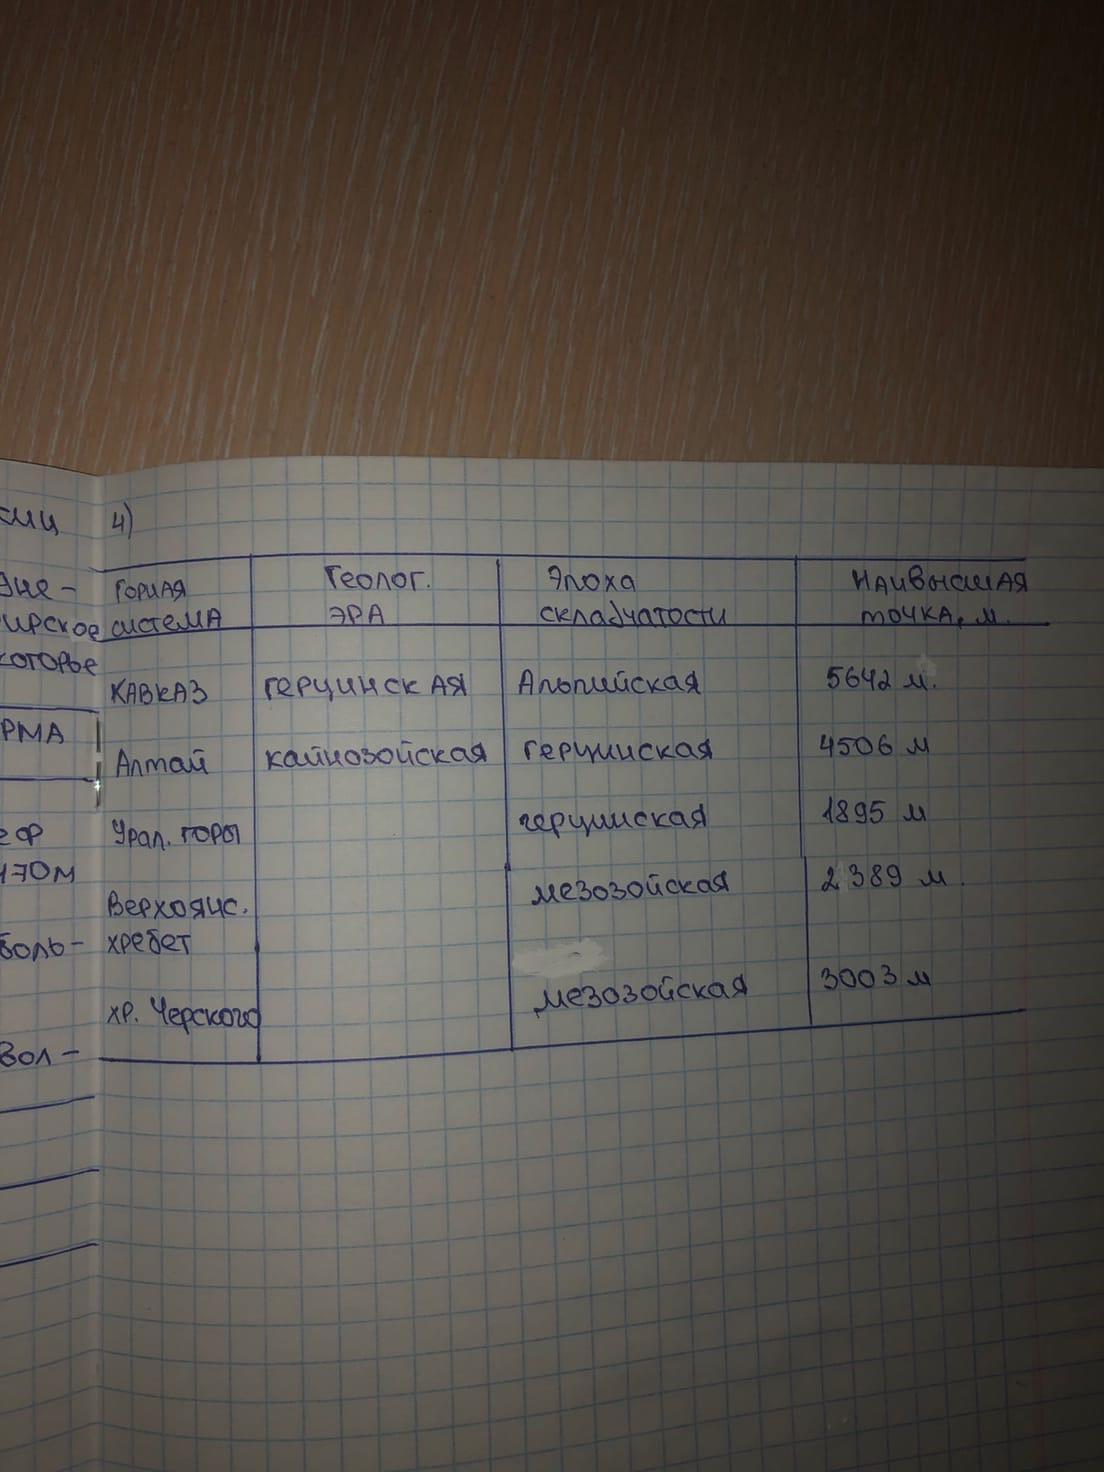 смц
4)
эне-
ирское
которье
РМА
еф
170м
боль-
вол-
Горная система
Геолог. ЭРА
Эпоха складчатости
Наивысшая точка, м.
КАВКАЗ герцинскАЯ Альпийская 5642 м.
Алтай кайнозойская герцинская 4506 м
Урал. горы герцинская 1895 м
Верхоянс. хребет мезозойская 2389 м.
хр. Черского мезозойская 3003 м